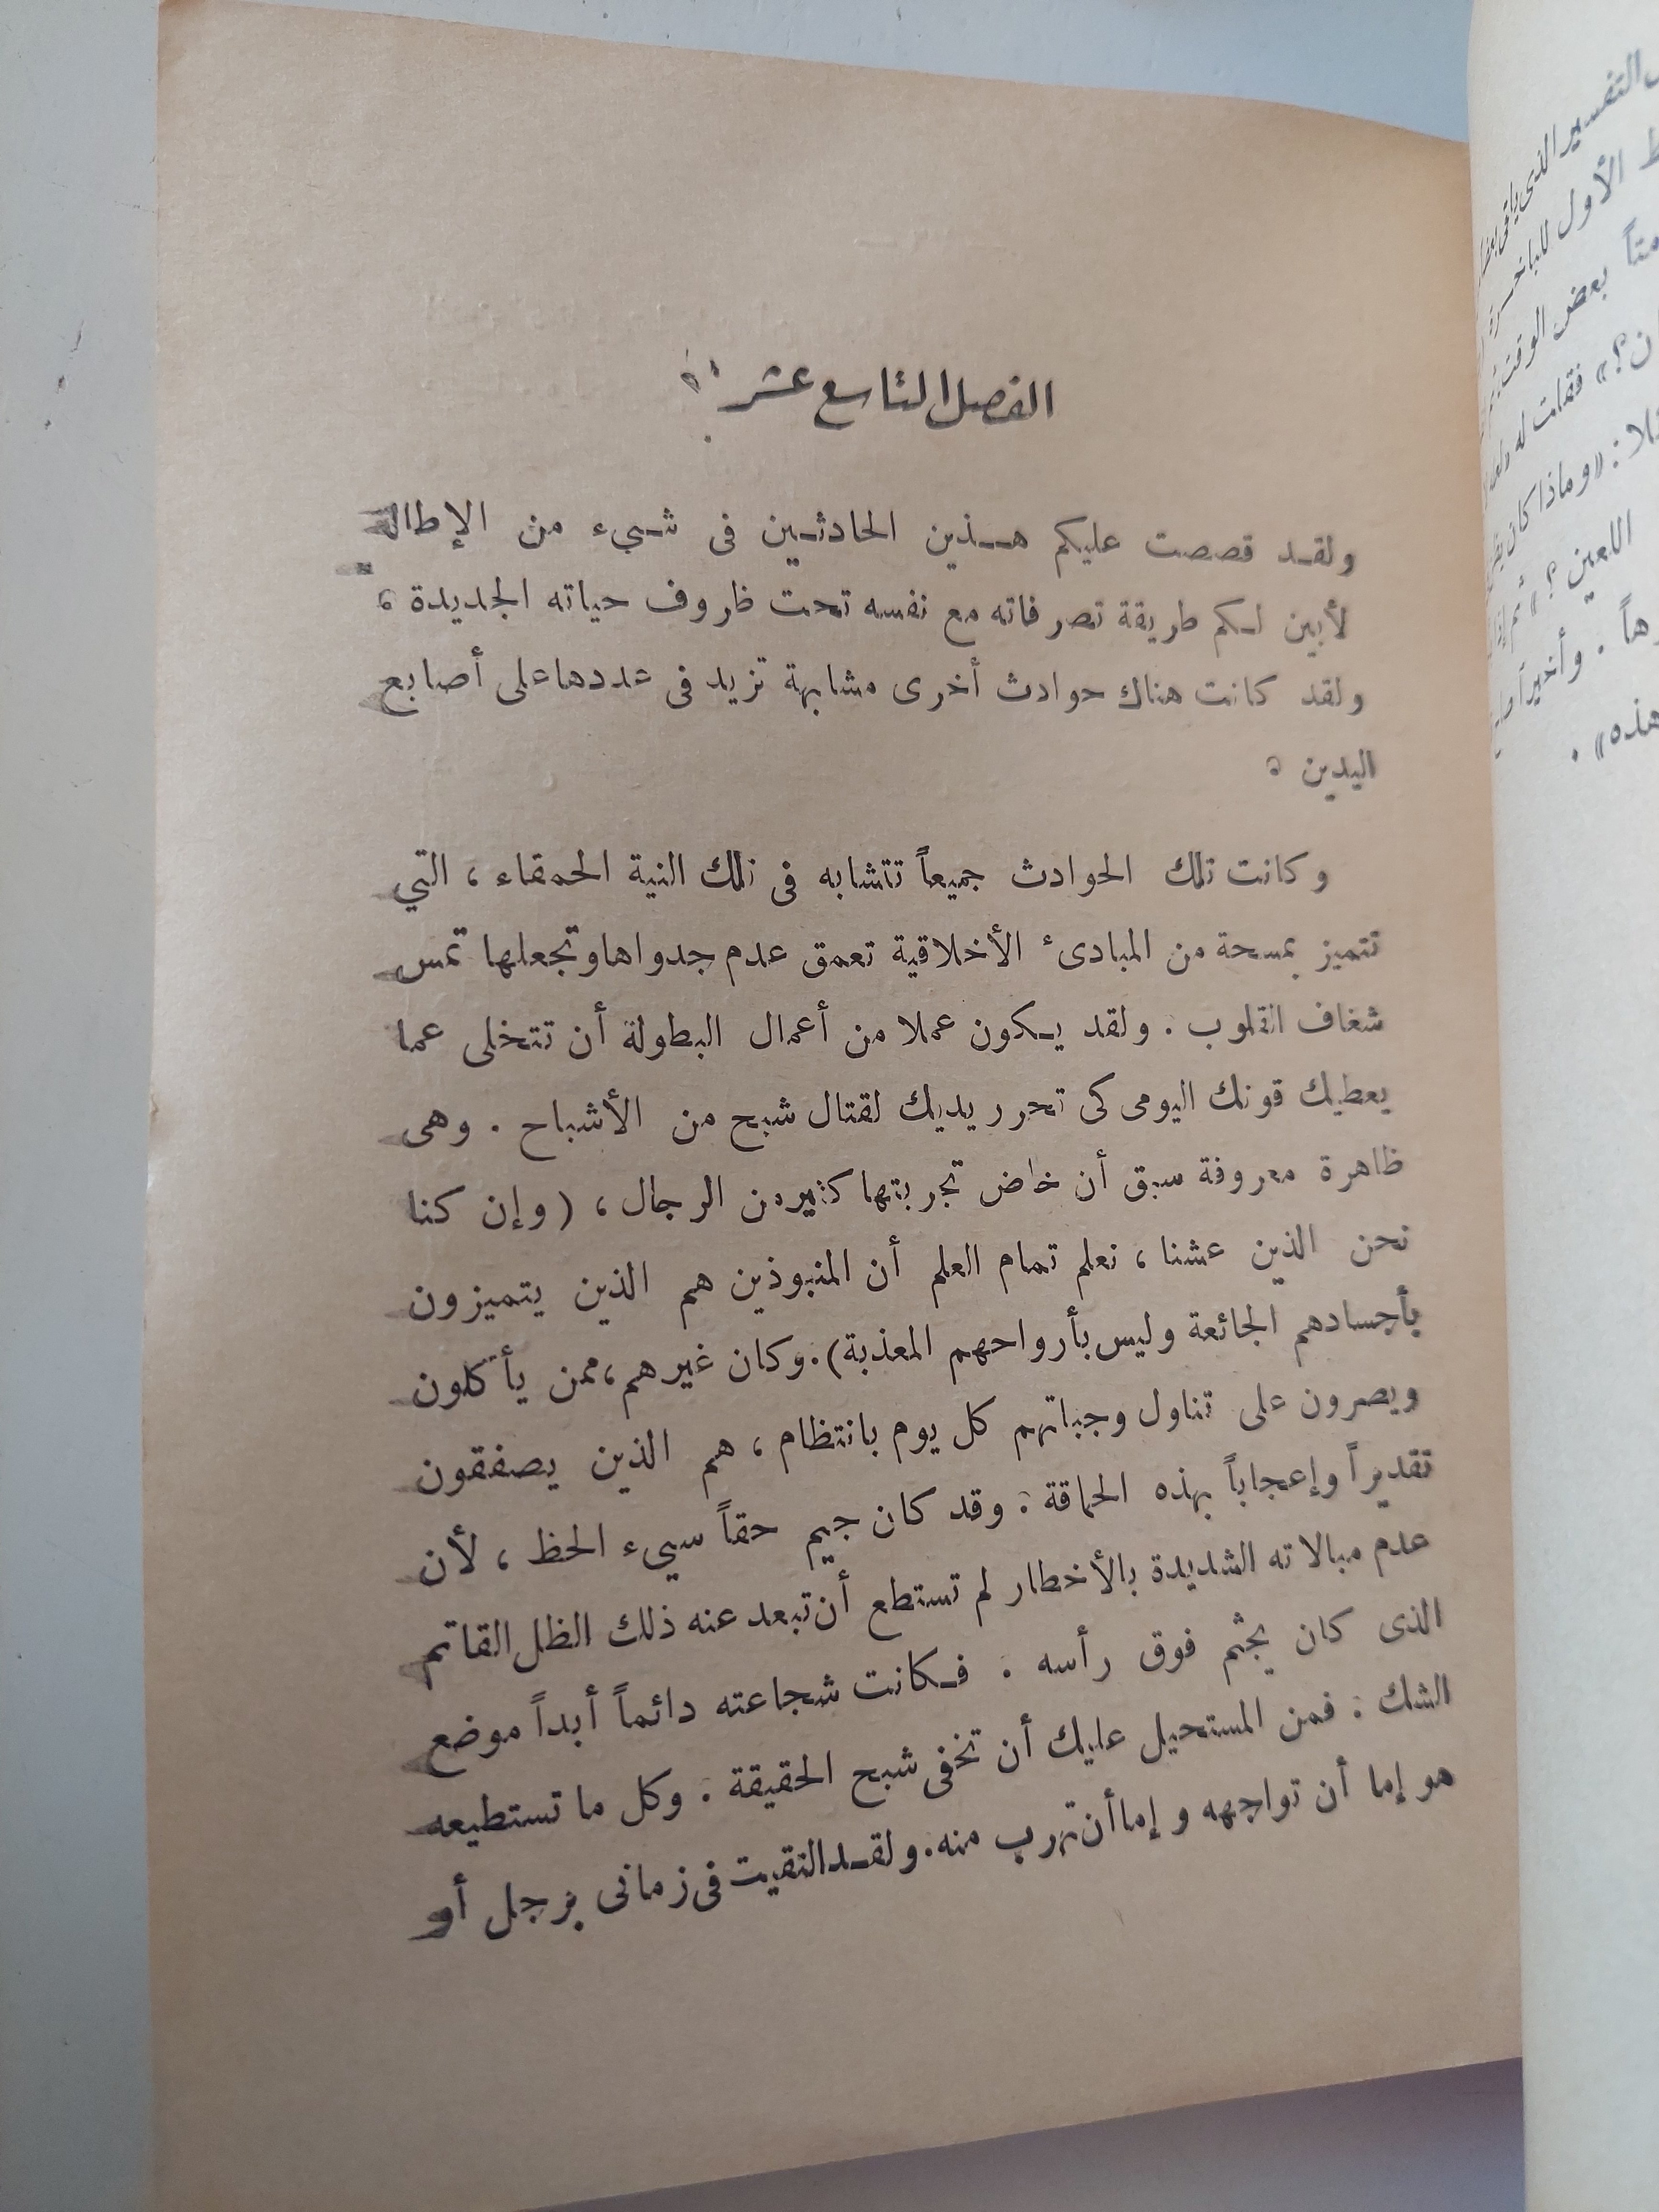 الفصل التاسع عشر
ولقد قصصت عليكم هذين الحادثين فى شىء من الإطالة
لأبين لكم طريقة تصرفاته مع نفسه تحت ظروف حياته الجديدة ،
ولقد كانت هناك حوادث أخرى مشابهة تزيد فى عددها على أصابع
اليدين .
وكانت تلك الحوادث جميعاً تتشابه فى تلك النية الحمقاء ، التي
تتميز بمسحة من المبادىء الأخلاقية تعمق عدم جدواها وتجعلها تمس
شغاف القلوب . ولقد يكون عملا من أعمال البطولة أن تتخلى عما
يعطيك قوتك اليومى كى تحرر يديك لقتال شبح من الأشباح . وهى
ظاهرة معروفة سبق أن خاض تجربتها كثير من الرجال ، (وإن كنا
نحن الذين عشنا ، نعلم تمام العلم أن المنبوذين هم الذين يتميزون
بأجسادهم الجائعة وليس بأرواحهم المعذبة). وكان غيرهم ، ممن يأكلون
ويصرون على تناول وجباتهم كل يوم بانتظام ، هم الذين يصفقون
تقديراً وإعجاباً بهذه الحماقة : وقد كان جيم حقاً سيىء الحظ ، لأن
عدم مبالاته الشديدة بالأخطار لم تستطع أن تبعد عنه ذلك الظل القاتم
الذى كان يجثم فوق رأسه . فكانت شجاعته دائماً أبداً موضع
الشك : فمن المستحيل عليك أن تخفى شبح الحقيقة . وكل ما تستطيعه
هو إما أن تواجهه وإما أن تهرب منه. ولقد التقيت فى زمانى برجل أو
التفسير الذى
الأول للباخرة
بعض الوقت
فقلت له
: «وماذا كان
اللعين ؟»
. وأخيراً
هذه» .